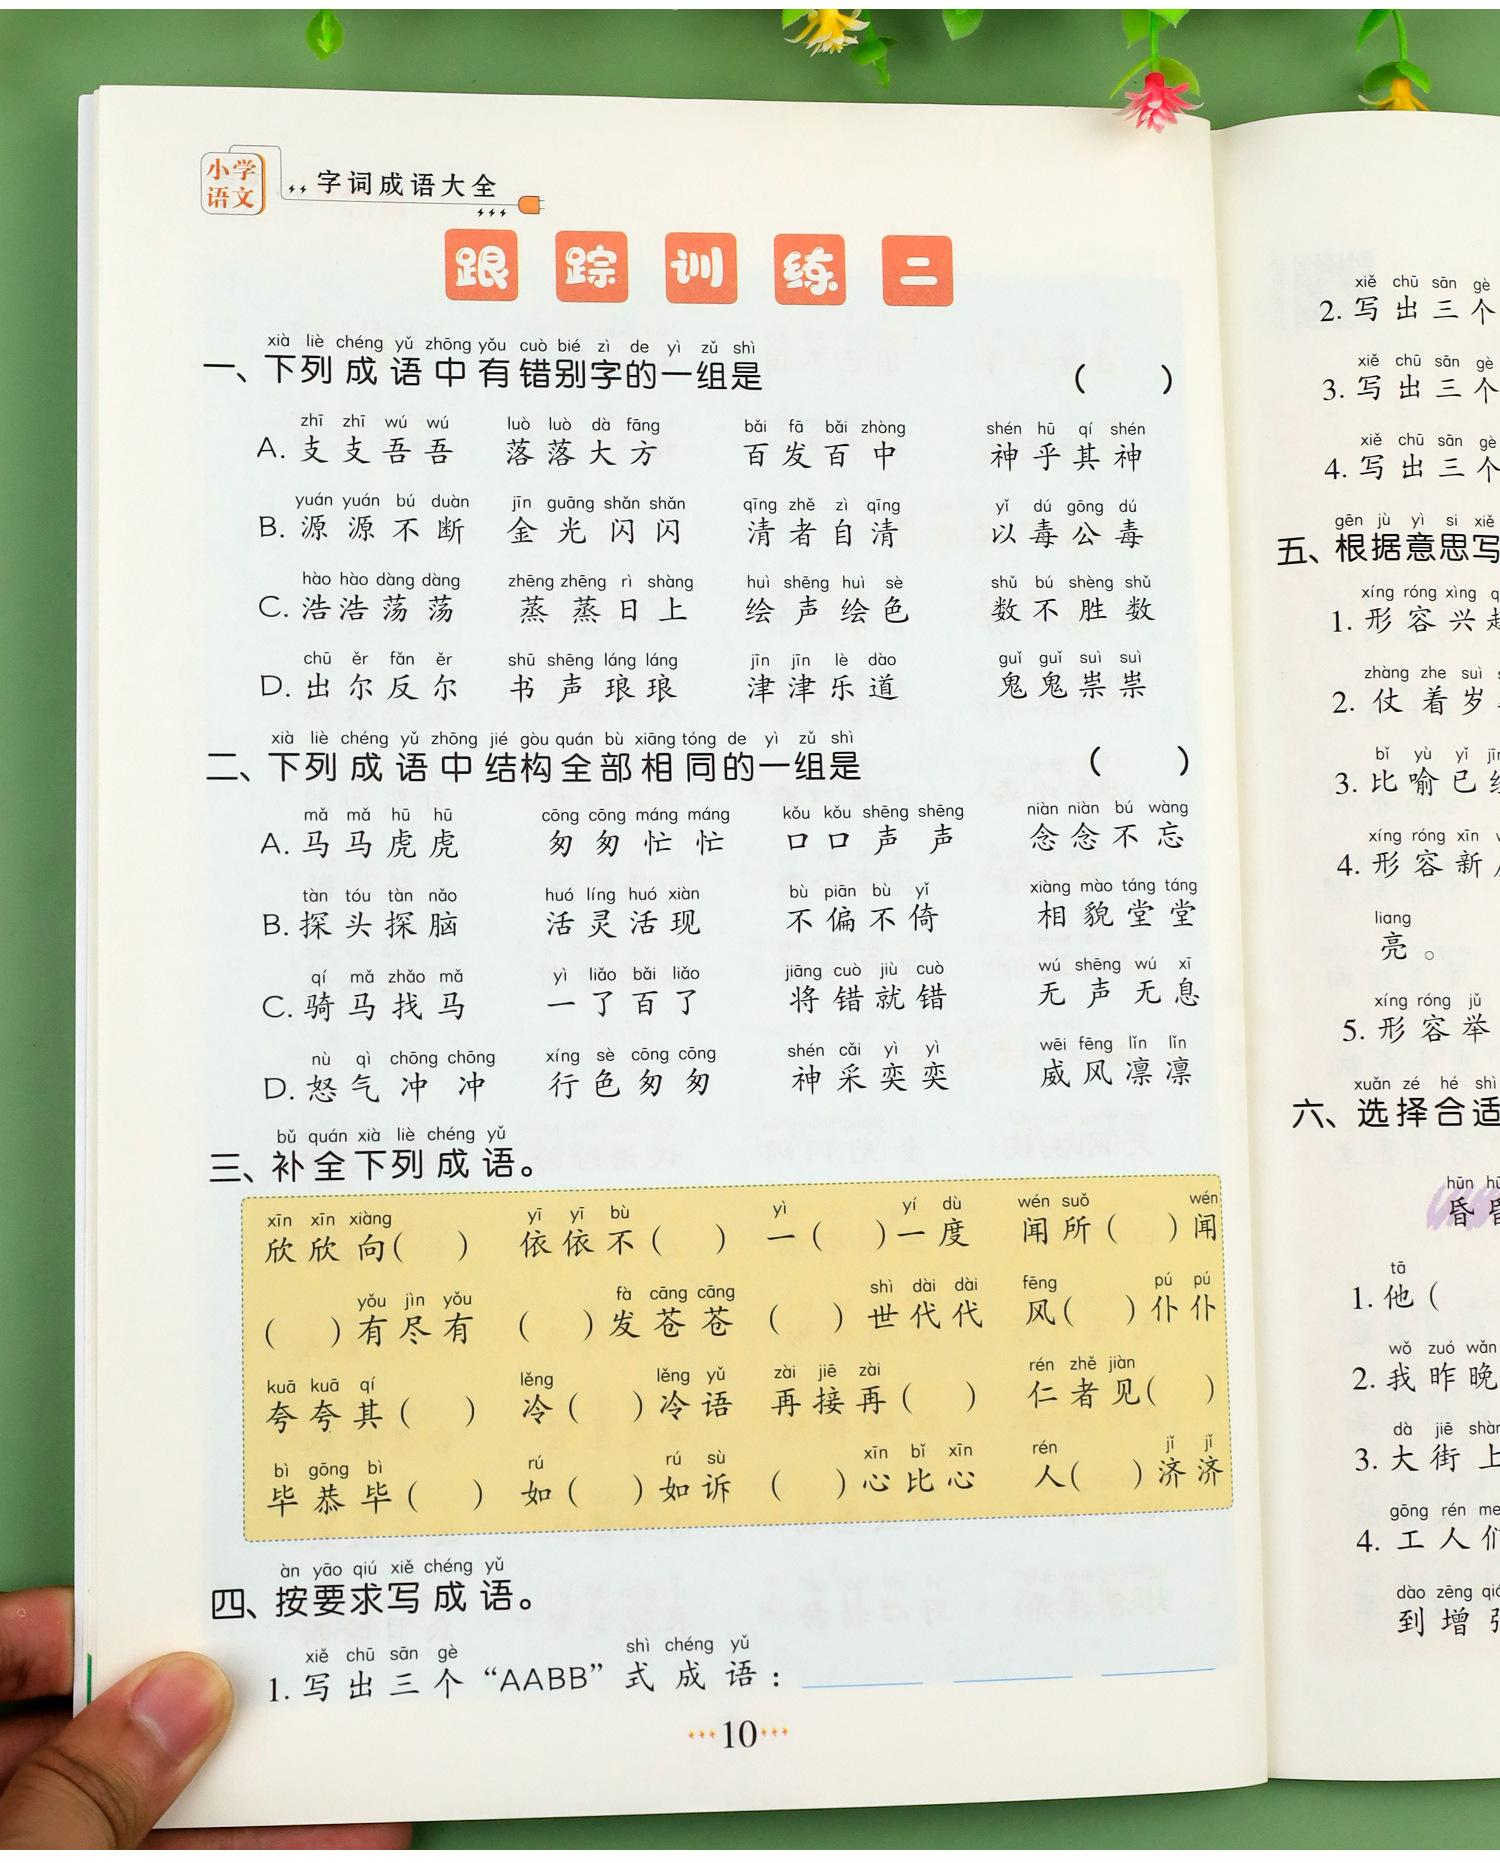 小学
语文
字词成语大全
跟踪训练二
xià liè chéng yǔ zhōng yǒu cuò bié zì de yì zǔ shì
一、下列成语中有错别字的一组是 ( )
zhī zhī wú wú luò luò dà fāng bǎi fā bǎi zhòng shén hū qí shén
A. 支支吾吾 落落大方 百发百中 神乎其神
yuán yuán bú duàn jīn guāng shǎn shǎn qīng zhě zì qīng yǐ dú gōng dú
B. 源源不断 金光闪闪 清者自清 以毒公毒
hào hào dàng dàng zhēng zhēng rì shàng huì shēng huì sè shǔ bú shèng shǔ
C. 浩浩荡荡 蒸蒸日上 绘声绘色 数不胜数
chū ěr fǎn ěr shū shēng láng láng jīn jīn lè dào guǐ guǐ suì suì
D. 出尔反尔 书声琅琅 津津乐道 鬼鬼祟祟
xià liè chéng yǔ zhōng jié gòu quán bù xiāng tóng de yì zǔ shì
二、下列成语中结构全部相同的一组是 ( )
mǎ mǎ hū hū cōng cōng máng máng kǒu kǒu shēng shēng niàn niàn bú wàng
A. 马马虎虎 匆匆忙忙 口口声声 念念不忘
tàn tóu tàn nǎo huó líng huó xiàn bù piān bù yǐ xiàng mào táng táng
B. 探头探脑 活灵活现 不偏不倚 相貌堂堂
qí mǎ zhǎo mǎ yì liǎo bǎi liǎo jiāng cuò jiù cuò wú shēng wú xī
C. 骑马找马 一了百了 将错就错 无声无息
nù qì chōng chōng xíng sè cōng cōng shén cǎi yì yì wēi fēng lǐn lǐn
D. 怒气冲冲 行色匆匆 神采奕奕 威风凛凛
bǔ quán xià liè chéng yǔ
三、补全下列成语。
xīn xīn xiàng yī yī bù yì yí dù wén suǒ wén
欣欣向( ) 依依不( ) 一( )一度 闻所( )闻
yǒu jìn yǒu fà cāng cāng shì dài dài fēng pú pú
( )有尽有 ( )发苍苍 ( )世代代 风( )仆仆
kuā kuā qí lěng lěng yǔ zài jiē zài rén zhě jiàn
夸夸其( ) 冷( )冷语 再接再( ) 仁者见( )
bì gōng bì rú rú sù xīn bǐ xīn rén jǐ jǐ
毕恭毕( ) 如( )如诉 ( )心比心 人( )济济
àn yāo qiú xiě chéng yǔ
四、按要求写成语。
xiě chū sān gè shì chéng yǔ
1. 写出三个“AABB”式成语：
10
xiě chū sān gè
2. 写出三个
xiě chū sān gè
3. 写出三个
xiě chū sān gè
4. 写出三个
gēn jù yì si xiě
五、根据意思写
xíng róng xìng
1. 形容兴
zhàng zhe suì
2. 仗着岁
bǐ yù yǐ
3. 比喻已
xíng róng xīn
4. 形容新
liang
亮。
xíng róng jǔ
5. 形容举
xuǎn zé hé shì
六、选择合适
hūn
昏
tā
1. 他(
wǒ zuó wǎn
2. 我昨晚
dà jiē shàn
3. 大街上
gōng rén me
4. 工人们
dào zēng
到增